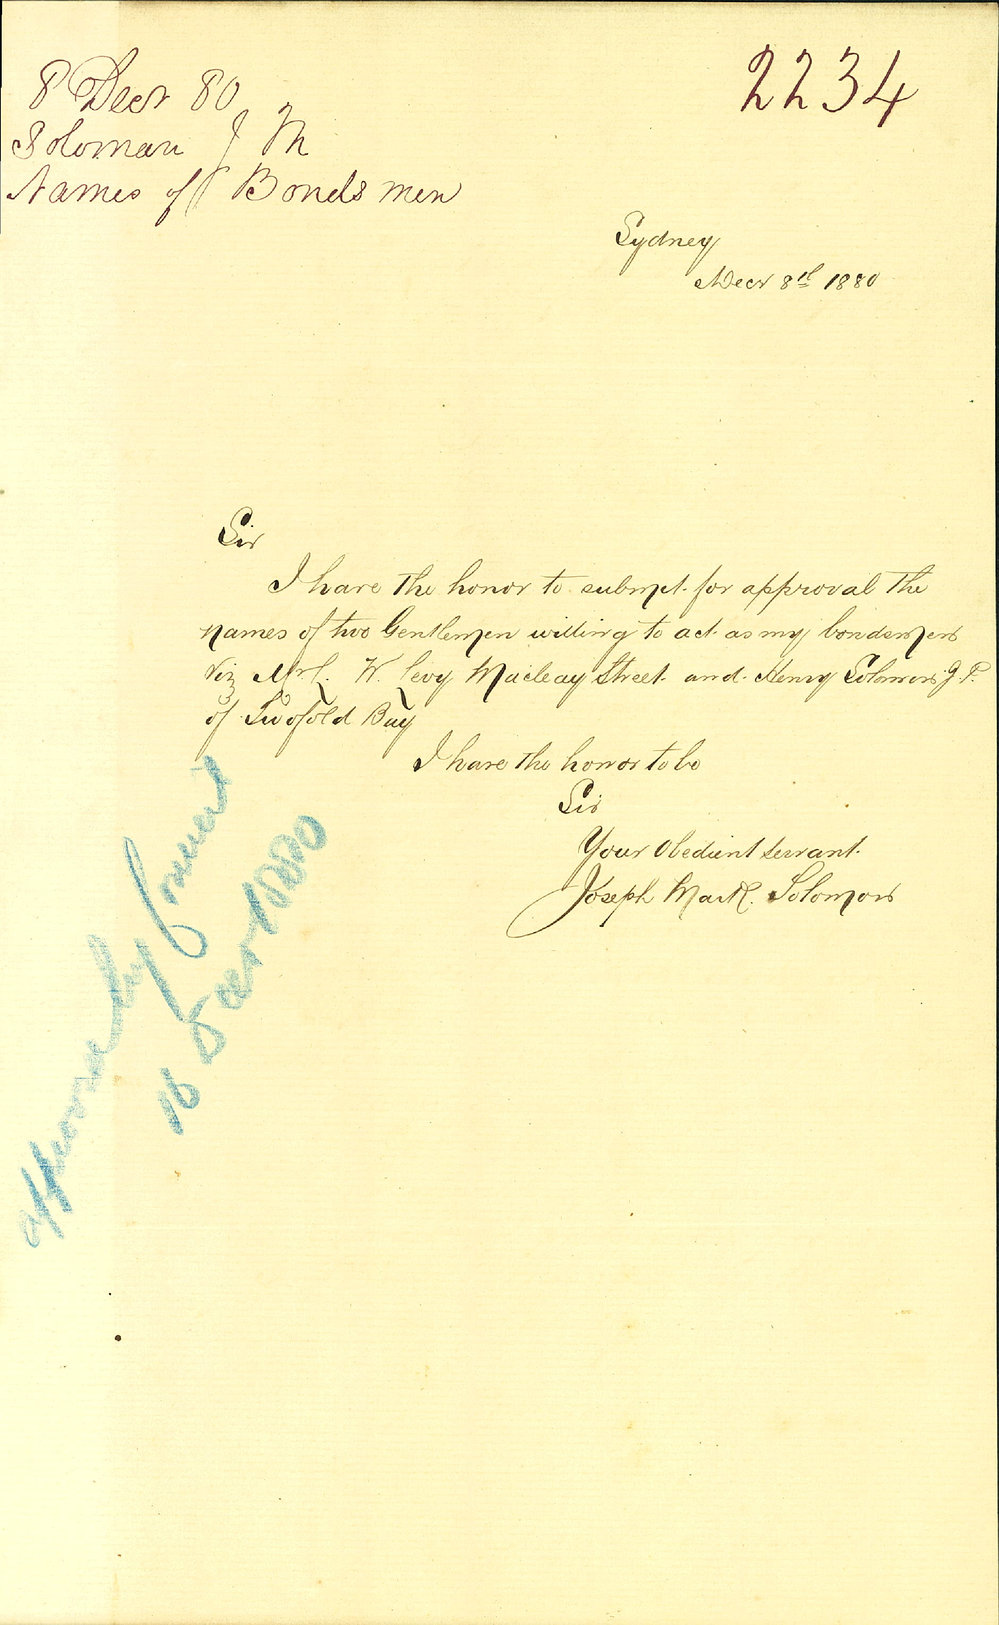 8 Decr 80
Soloman J M
Names of Bondsmen
2234
Sydney
Decr 8th 1880
Sir
I have the honor to submit for approval the
names of two Gentlemen willing to act as my bondsmen
viz Mr L. W. Levy Macleay Street and Henry Solomon J.P.
of Twofold Bay
I have the honor to be
Sir
Your Obedient Servant
Joseph Mark Solomon
approved by
16 Decr 1880